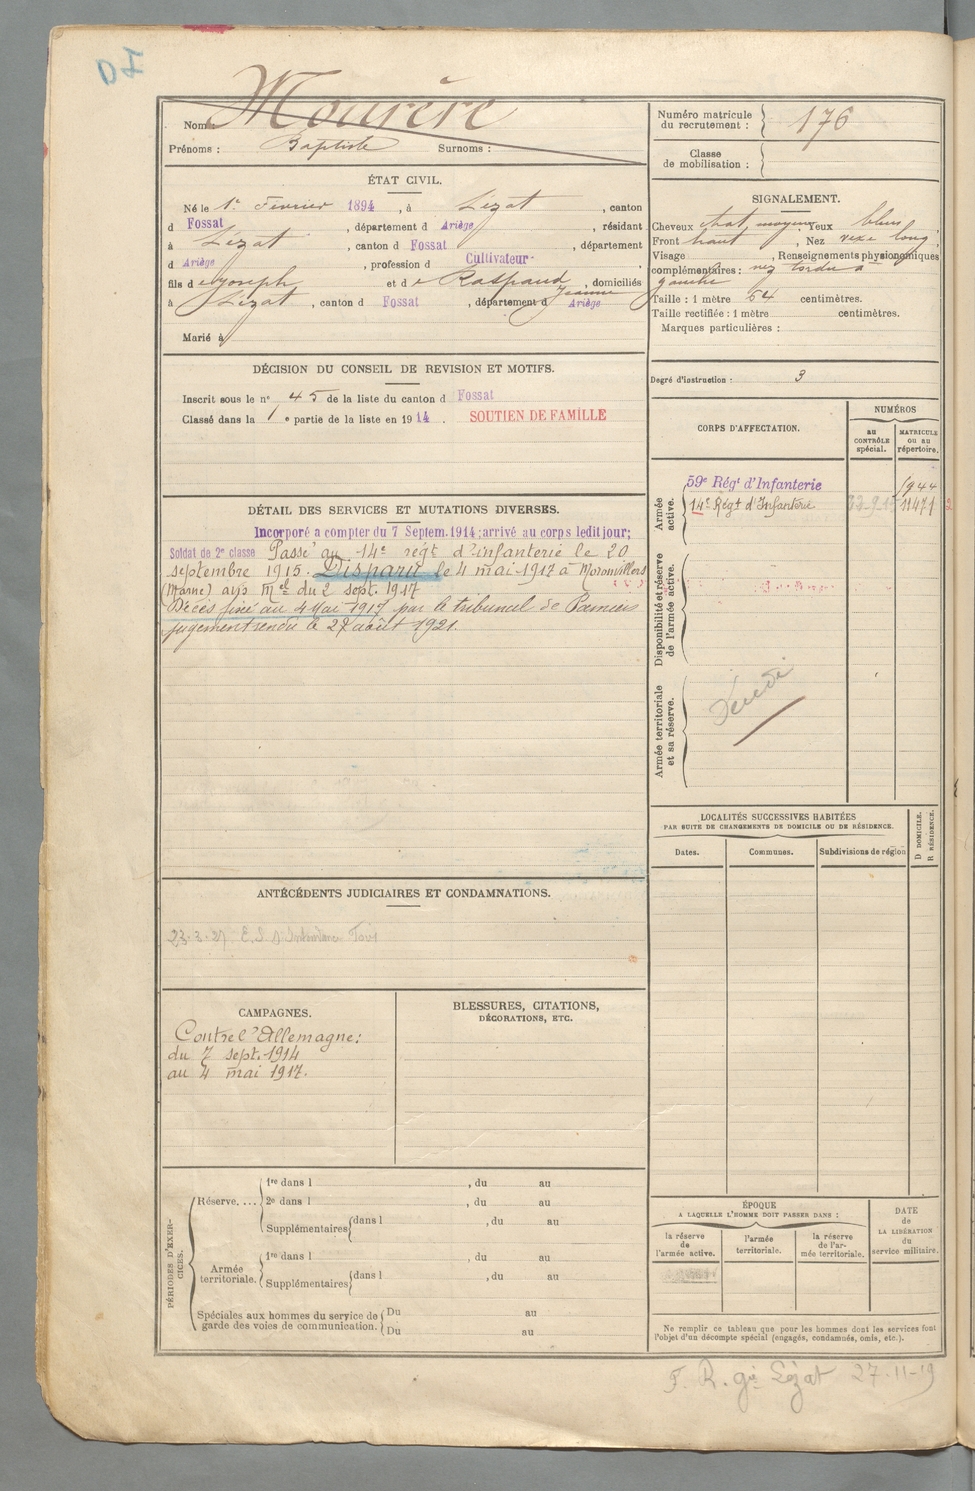 Nom : Mourère
Prénoms : Baptiste Surnoms :
ÉTAT CIVIL.
Né le 1er Février 1894, à Lézat, canton
d Fossat, département d Ariège, résidant
à Lézat, canton d Fossat, département
d Ariège, profession d Cultivateur
fils de Joseph et de Raspaud Jeanne, domiciliés
à Lézat, canton d Fossat, département d Ariège
Marié à
DÉCISION DU CONSEIL DE REVISION ET MOTIFS.
Inscrit sous le n° 45 de la liste du canton d Fossat
Classé dans la 1e partie de la liste en 1914. SOUTIEN DE FAMILLE
DÉTAIL DES SERVICES ET MUTATIONS DIVERSES.
Incorporé a compter du 7 Septem. 1914; arrivé au corps ledit jour;
Soldat de 2e classe Passé au 14e régt d'infanterie le 20
septembre 1915. Disparu le 4 mai 1917 à Moronvillers
(Marne) avis Mel du 2 sept. 1917
Décès fixé au 4 Mai 1917 par le tribunal de Pamiers
jugement rendu le 27 août 1921.
ANTÉCÉDENTS JUDICIAIRES ET CONDAMNATIONS.
CAMPAGNES.
Contre l'Allemagne:
du 7 sept. 1914
au 4 mai 1917.
BLESSURES, CITATIONS,
DÉCORATIONS, ETC.
PÉRIODES D'EXERCICES.
Réserve.... 1re dans l , du au
2e dans l , du au
Supplémentaires dans l , du au
Armée territoriale. 1re dans l , du au
Supplémentaires dans l , du au
Spéciales aux hommes du service de Du au
garde des voies de communication. Du au
Numéro matricule
du recrutement : 176
Classe
de mobilisation :
SIGNALEMENT.
Cheveux chat. moyens, Yeux bleus,
Front haut, Nez vexe long,
Visage , Renseignements physionomiques
complémentaires : nez tordu à
gauche
Taille : 1 mètre 64 centimètres.
Taille rectifiée : 1 mètre centimètres.
Marques particulières :
Degré d'instruction : 3
CORPS D'AFFECTATION.
NUMÉROS
au CONTRÔLE spécial.
MATRICULE ou au répertoire.
Armée active.
59e Régt d'Infanterie
14e Régt d'Infanterie 11471
Disponibilité et réserve de l'armée active.
Armée territoriale et sa réserve.
LOCALITÉS SUCCESSIVES HABITÉES
PAR SUITE DE CHANGEMENTS DE DOMICILE OU DE RÉSIDENCE.
Dates. Communes. Subdivisions de région
D DOMICILE.
R RÉSIDENCE.
ÉPOQUE
A LAQUELLE L'HOMME DOIT PASSER DANS :
la réserve de l'armée active.
l'armée territoriale.
la réserve de l'armée territoriale.
DATE
de
LA LIBÉRATION
du
service militaire.
Ne remplir ce tableau que pour les hommes dont les services font
l'objet d'un décompte spécial (engagés, condamnés, omis, etc.).
F. R. gie Lézat 27-11-19